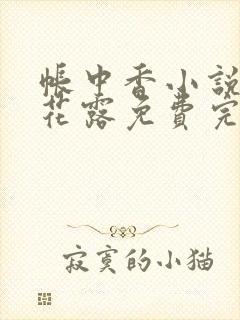 帐中香小説
花露免費完
寂寞的小猫